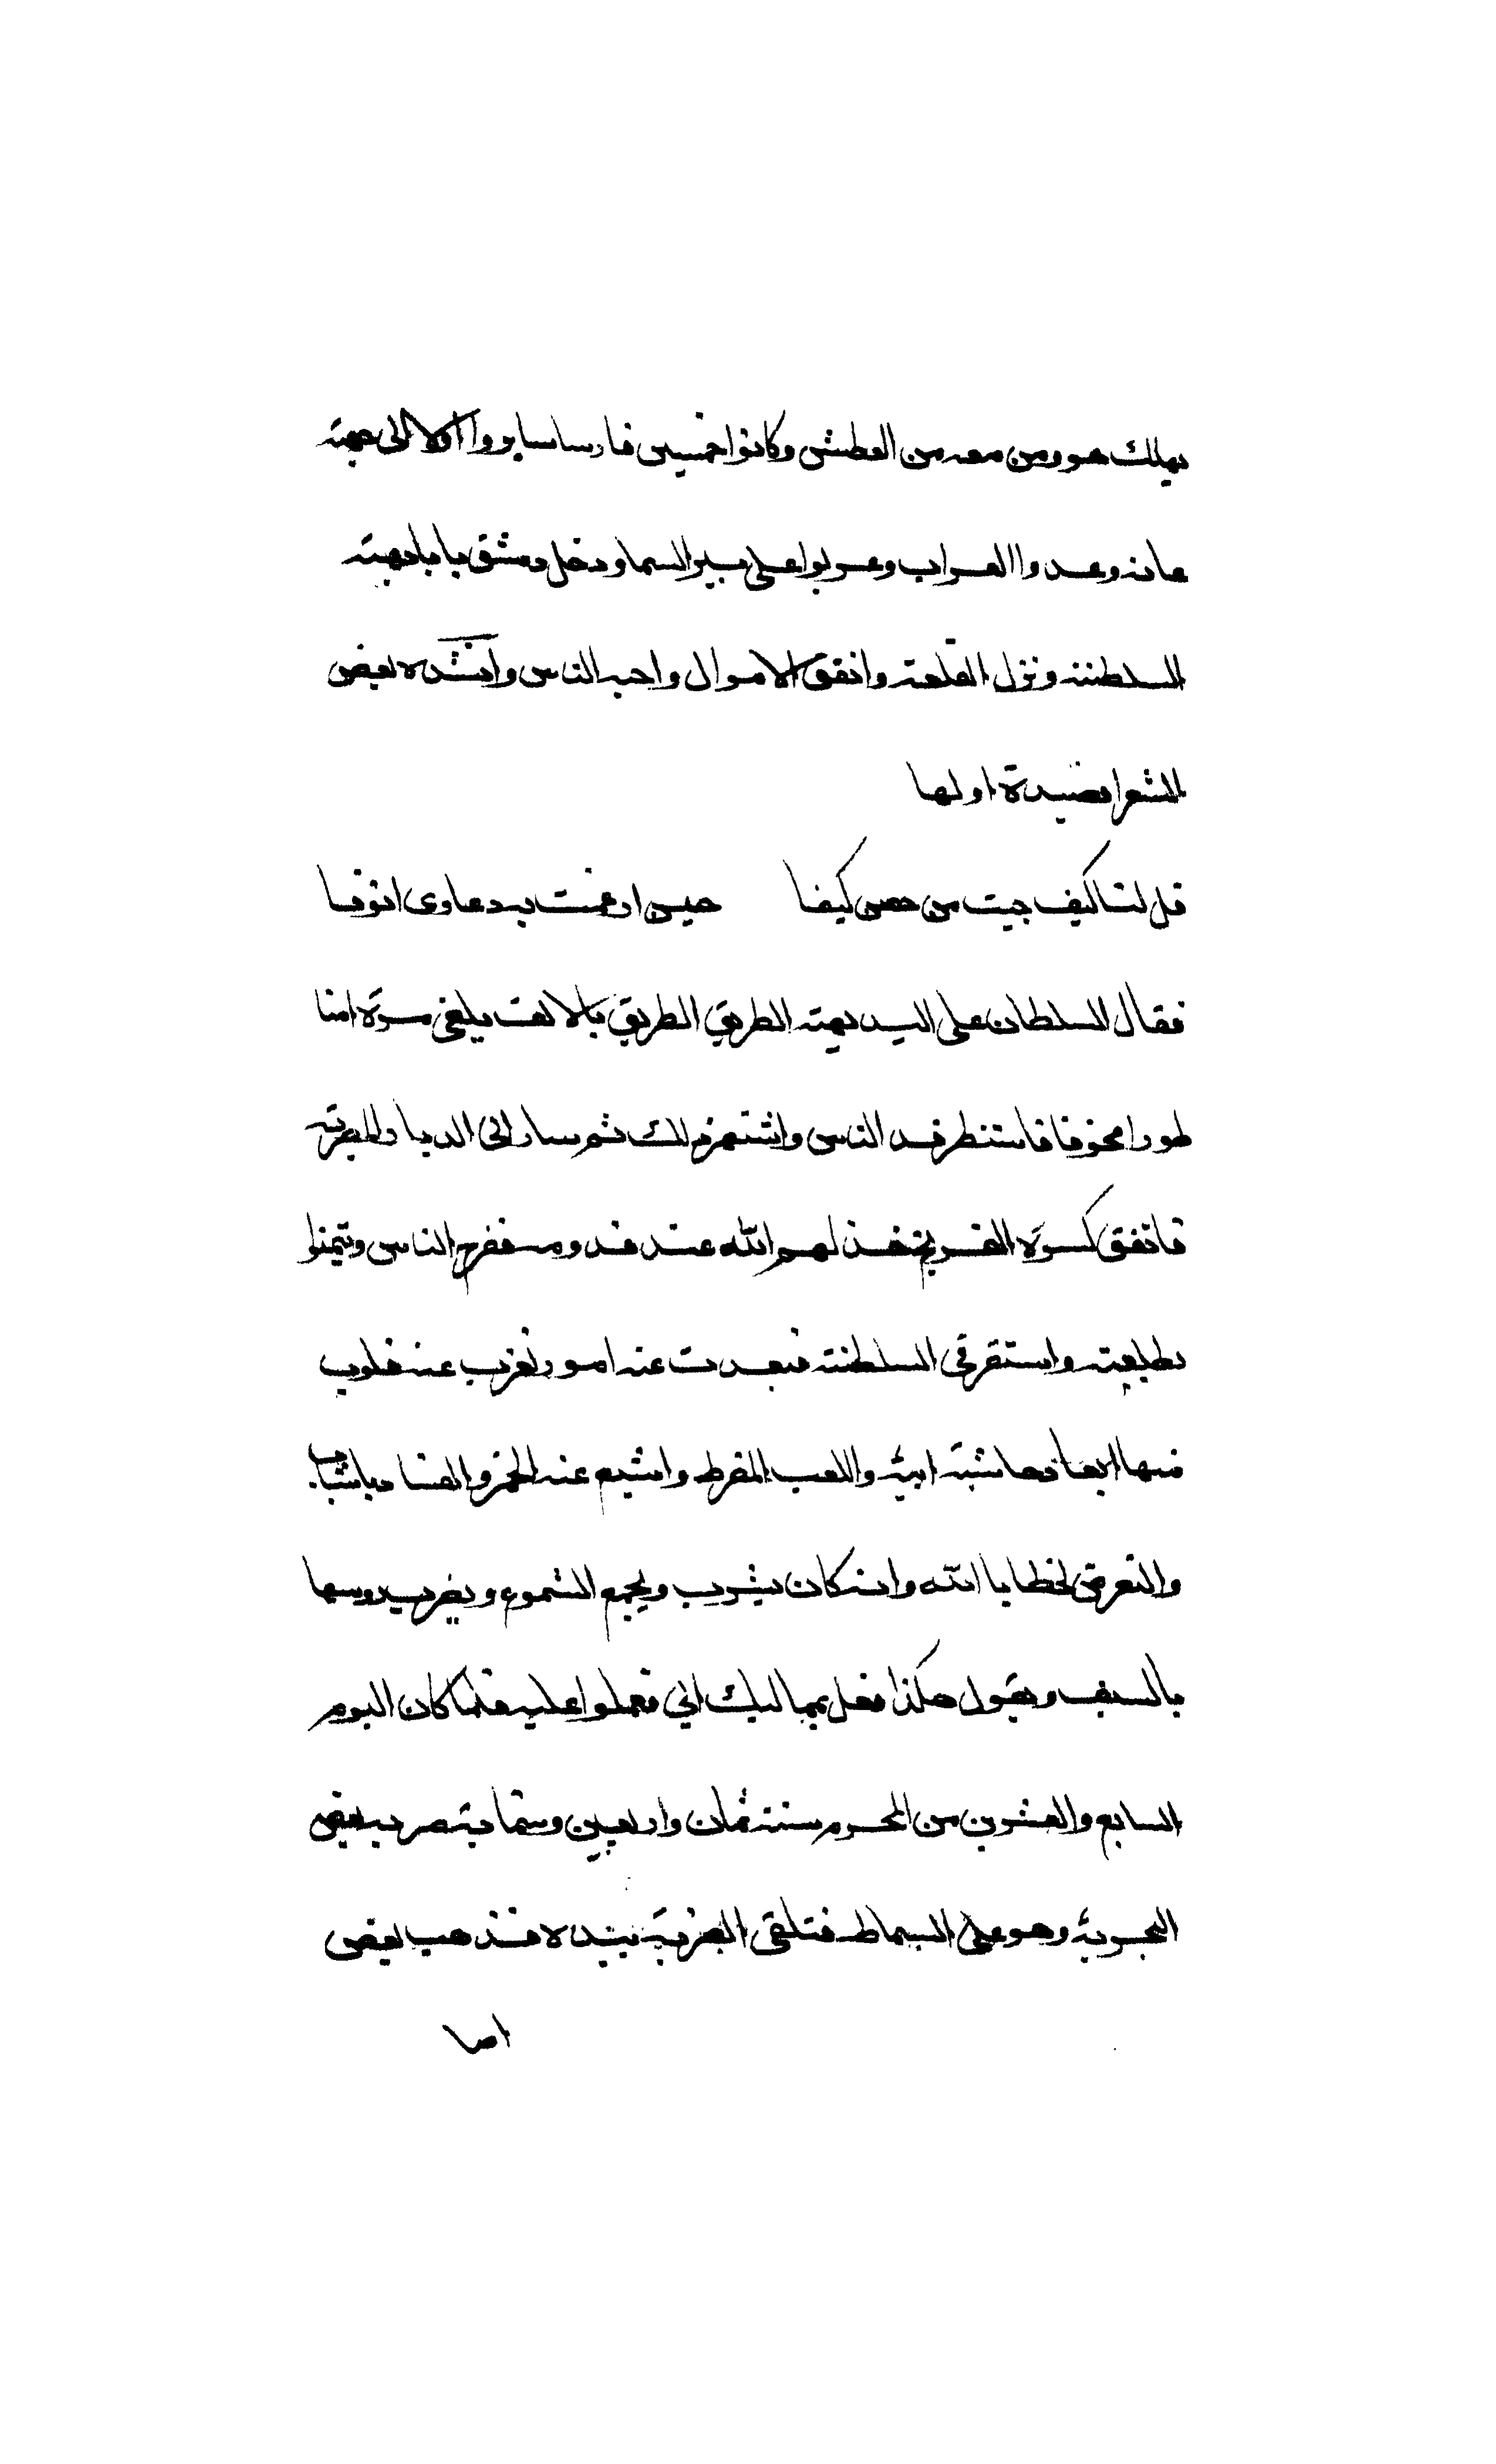 يهلك هو ومن معه من العطش وكانوا خمسين فارسا سايروا اولا الى جهة
عانه وعدوا الفراب وعربوا على بير السما ودخل دمشق بابلة بهيئة
السلطنة ونزل القلعة وانفق الاموال واحبه الناس وانشده بعض
الشعرا قصيدة اولها
قل لنا كيف جيت من حصن كيفا حين ارغمت بيد عاوى انوفا
فقال السلطان على اليد يهته الطريق الطريق بالالف يلغى مرة امنا
طورا مخوفا فاستنظرفه الناس واشتهر ذلك ثم سار الى الديار المصرية
فاتفق كسرة الفرنج خذلهم الله عند قدومه ففرح الناس وتيمنوا
بطلعته واستقر فى السلطنة فبعدت عنه امور نفرب عنه قلوب
منها ابعاد حاشية ابيه واللعب المفرط واشيع عنه الخمر والفساد بالشباب
والتعرض لحظايا ابيه وانه كان يشرب ويجمع الشموع ويضرب روسها
بالسيف ويقول هكذا افعل بمماليك ابي فعملوا عليه فلما كان اليوم
السابع والعشرين من المحرم سنة ثمان واربعين وستماية ضربه بعض
البحرية وهو على السماط فتلقى الضربة بيده فذهب بعض
اصا